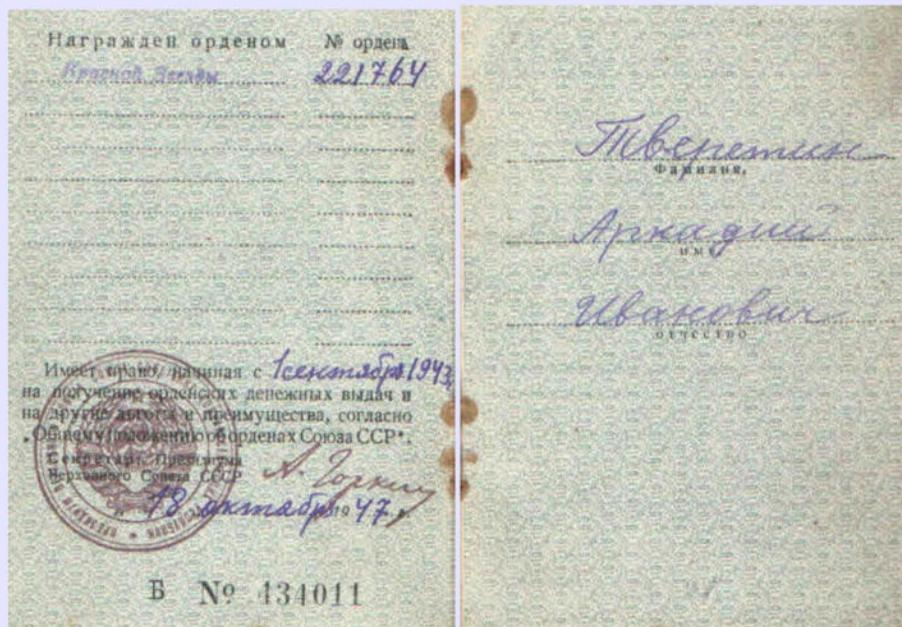 Награжден орденом № ордена
Красной Звезды 221764
Имеет право, начиная с 1 сентября 1943 г.
на получение орденских денежных выдач и
на другие льготы и преимущества, согласно
„Общему положению об орденах Союза ССР“.
Секретарь Президиума
Верховного Совета СССР А. Горкин
„18“ октября 1947 г.
Б № 434011
Тверетин
Фамилия,
Аркадий
имя
Иванович
отчество